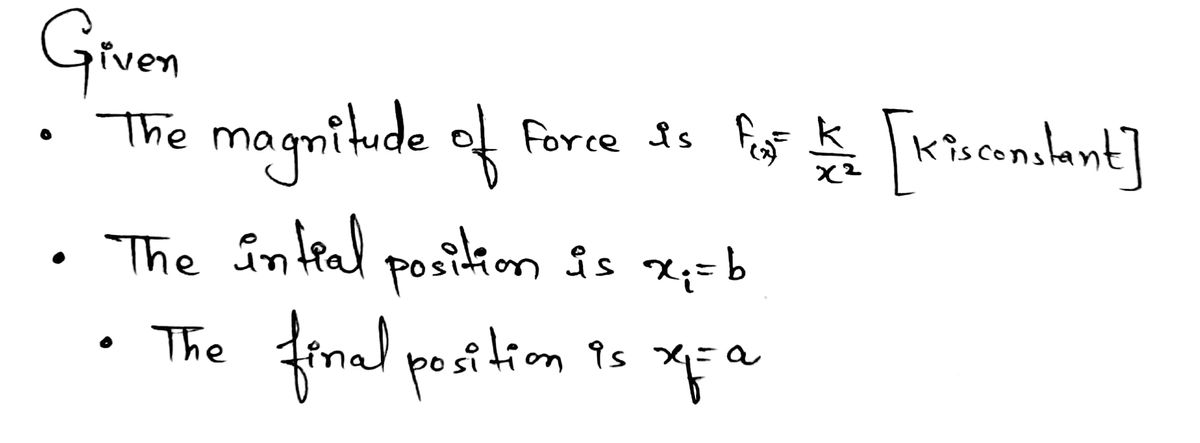 Given
• The magnitude of Force is F(x) = k/x² [K is constant]
• The intial position is xᵢ = b
• The final position is x_f = a